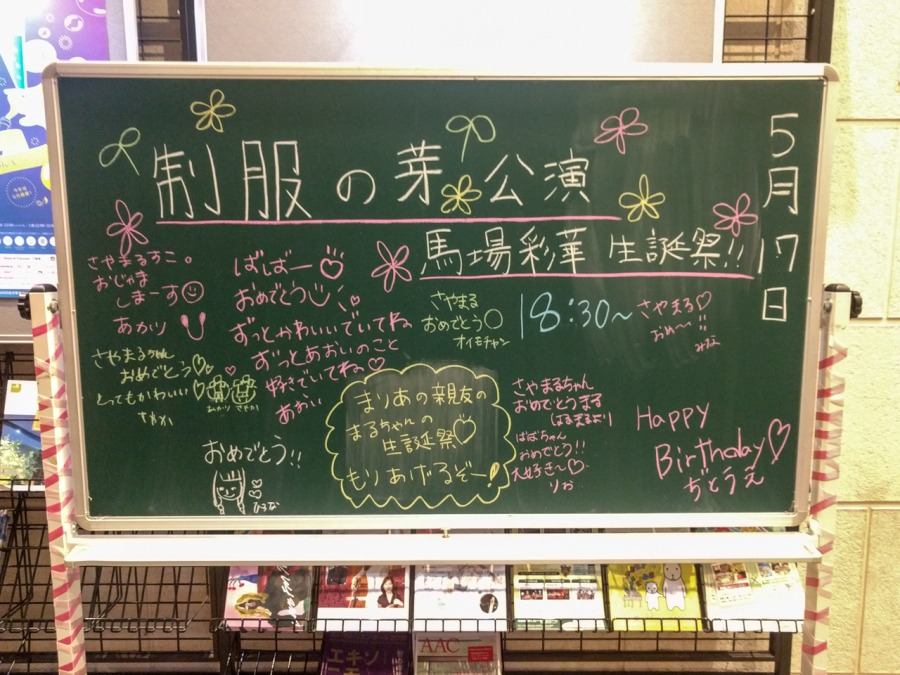 制服の芽公演
5月17日
馬場彩華 生誕祭!!
18:30~
さやまるすこ。
おじゃま
しまーす
あかり
ばばー♡
おめでとう
ずっとかわいいでいてね
ずっとあおいのこと
好きでいてね♡
あおい
さやまる
おめでとう○
オイモチャン
さやまる♡
おめ〜!!
みな
さやまるちゃん
おめでとう♡
とってもかわいい♡
さやか
おめでとう!!
まりあの親友の
まるちゃんの
生誕祭♡
もりあげるぞー!
さやまるちゃん
おめでとうまる
はるまるより
ばばちゃん
おめでとう!!
大好き〜♡
りお
Happy
Birthday♡
ぢとうえ
AAC
エキソ